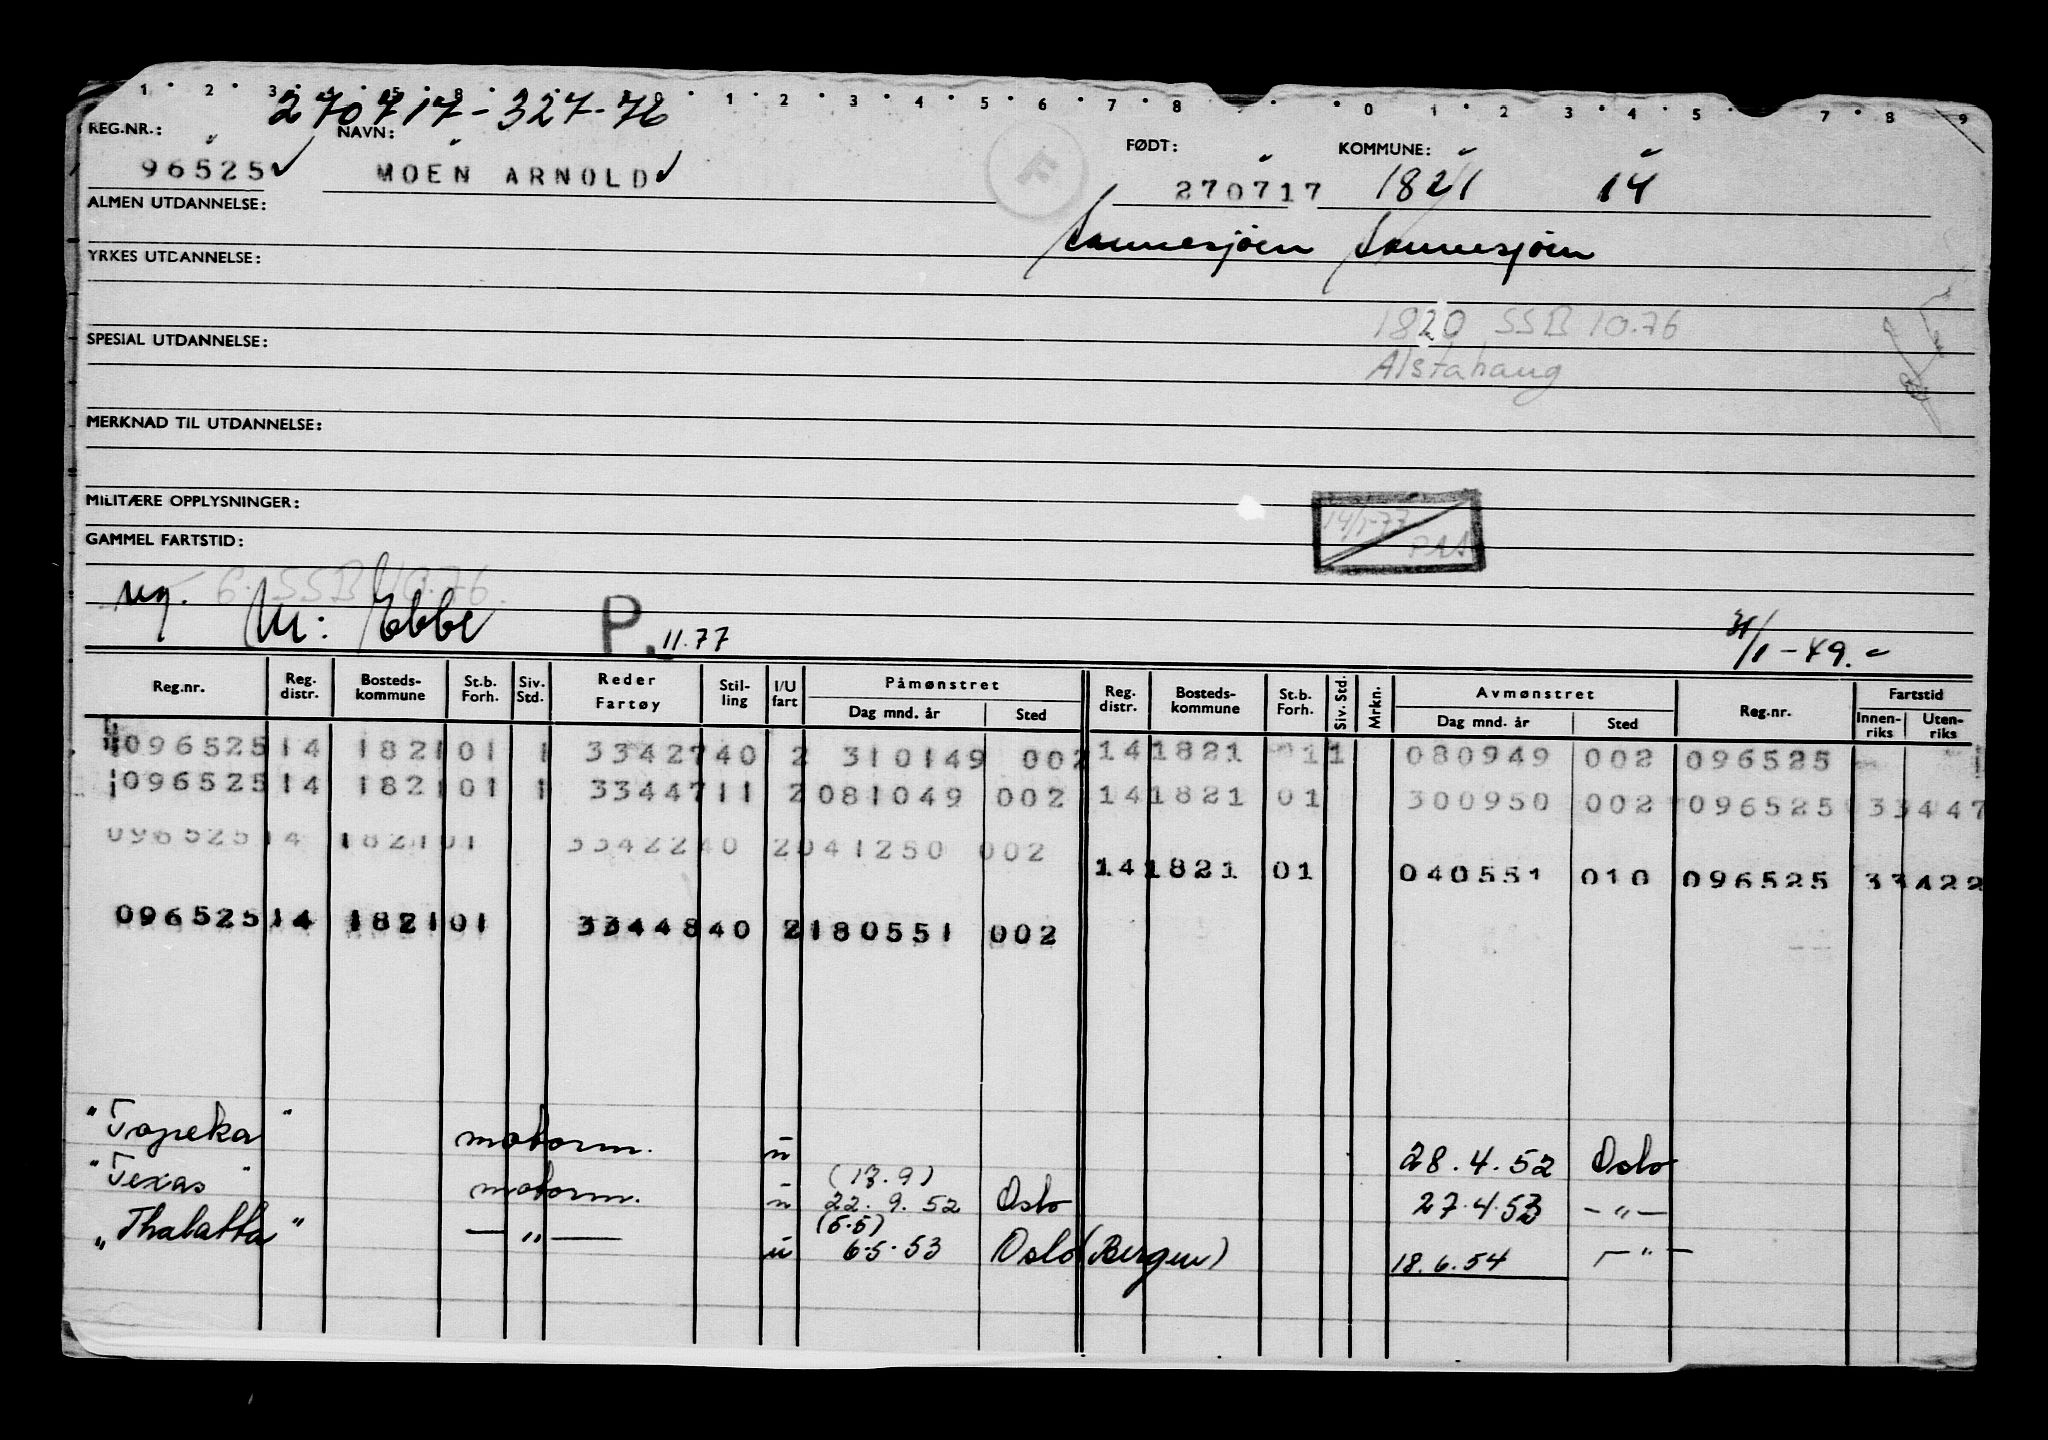 1 2 3 1 2 3 4 5 6 7 8 0 1 2 3 4 5 7 8 9
270717-327-76
REG.NR.: NAVN: FØDT: KOMMUNE:
96525 MOEN ARNOLD 270717 1821 14
ALMEN UTDANNELSE:
Sannesjøen Sannesjøen
YRKES UTDANNELSE:
1820 SSB 10.76
SPESIAL UTDANNELSE:
Alstahaug
MERKNAD TIL UTDANNELSE:
MILITÆRE OPPLYSNINGER:
GAMMEL FARTSTID:
6. SSB 10.76.
M: Ebbe P. 11.77 31/1-49.
Reg.nr. Reg. distr. Bosteds-kommune St.b. Forh. Siv. Std. Reder Fartøy Stil-ling I/U fart Påmønstret Dag mnd. år Sted Reg. distr. Bosteds-kommune St.b. Forh. Siv. Std. Mrkn. Avmønstret Dag mnd. år Sted Reg.nr. Fartstid Innen-riks Uten-riks
096525 14 1821 01 1 33427 40 2 310149 002 14 1821 01 1 080949 002 096525
096525 14 1821 01 1 33447 11 2 081049 002 14 1821 01 300950 002 096525 33447
096525 14 1821 01 33422 40 2 041250 002
14 1821 01 040551 010 096525 33422
096525 14 1821 01 33448 40 2 180551 002
"Topeka" motorm. u 28.4.52 Oslo
"Texas" motorm. u (13.9) 22.9.52 Oslo 27.4.53 -"-
"Thalatta" -"- u (5.5) 6.5.53 Oslo (Bergen) 18.6.54 -"-